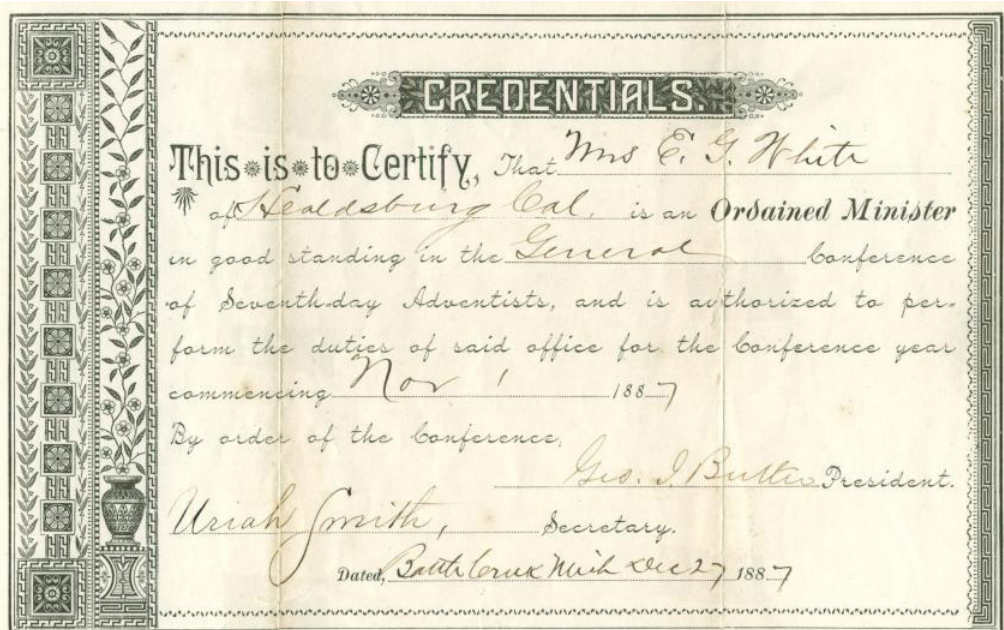 CREDENTIALS.
This is to Certify, That Mrs E. G. White
of Healdsburg Cal. is an Ordained Minister
in good standing in the General Conference
of Seventh-day Adventists, and is authorized to per-
form the duties of said office for the Conference year
commencing Nov 1 1887
By order of the Conference,
Geo. I Butler President.
Uriah Smith, Secretary.
Dated, Battle Creek Mich Dec 27 1887